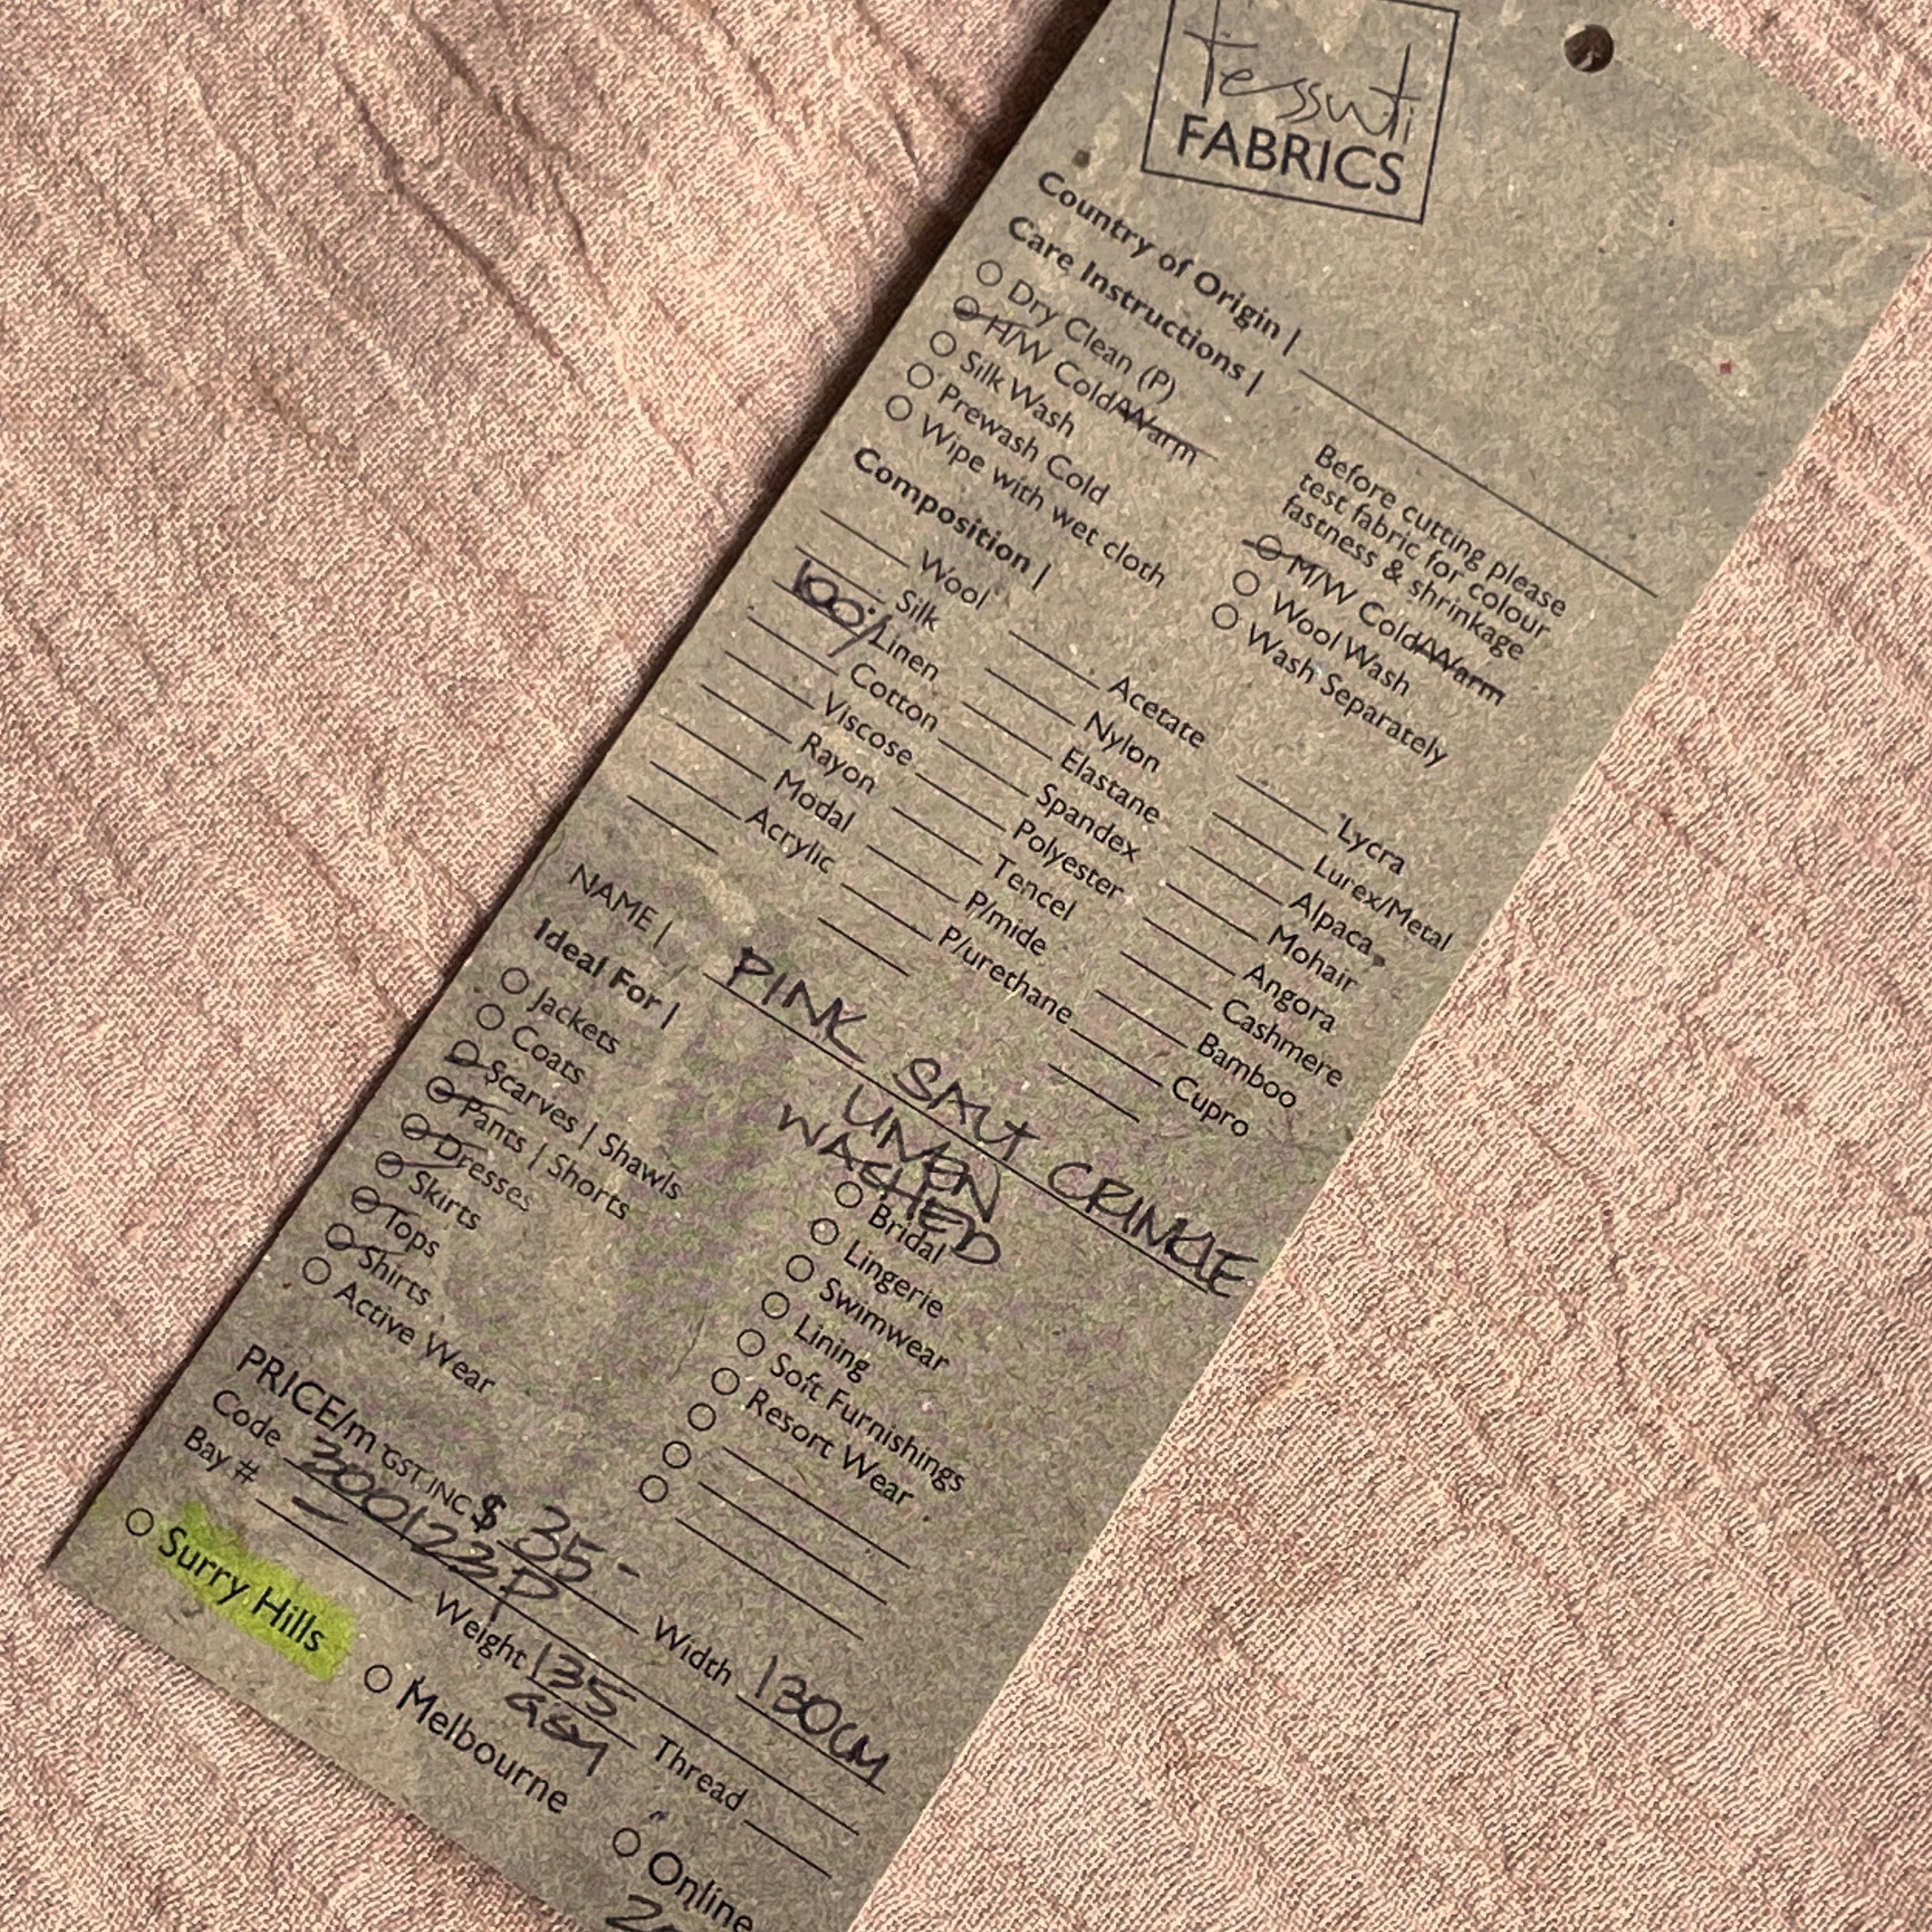 tessuti
FABRICS
Country of Origin |
Care Instructions |
Dry Clean (P)
H/W Cold/Warm
Silk Wash
Prewash Cold
Wipe with wet cloth
Before cutting please
test fabric for colour
fastness & shrinkage
M/W Cold/Warm
Wool Wash
Wash Separately
Composition |
Wool
Silk
100% Linen
Cotton
Viscose
Rayon
Modal
Acrylic
Acetate
Nylon
Elastane
Spandex
Polyester
Tencel
P/mide
P/urethane
Lycra
Lurex/Metal
Alpaca
Mohair
Angora
Cashmere
Bamboo
Cupro
NAME | PINK SALT CRINKLE
WASHED
Ideal For |
Jackets
Coats
Scarves | Shawls
Pants | Shorts
Dresses
Skirts
Tops
Shirts
Active Wear
Bridal
Lingerie
Swimwear
Lining
Soft Furnishings
Resort Wear
PRICE/m GST INC $ 35 - Width 130CM
Code 200122P
Bay # - Weight 135 GSM Thread
Surry Hills Melbourne Online